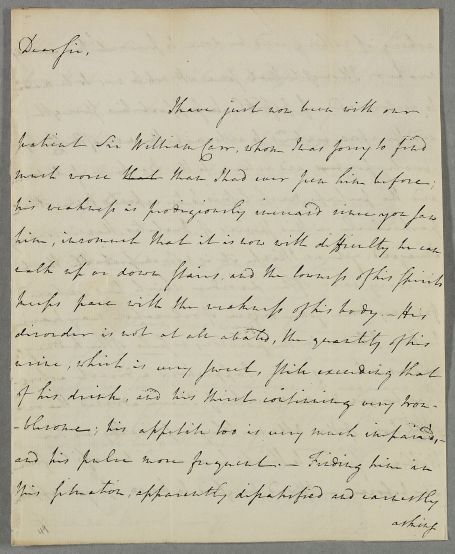 Dear Sir,
I have just now been with our
patient Sir William Carr, whom I was sorry to find
much worse that than I had ever seen him before;
his weakness is prodigiously increas'd since you saw
him, insomuch that it is now with difficulty he can
walk up or down stairs, and the lowness of his spirits
keeps pace with the weakness of his body. — His
disorder is not at all abated, the quantity of his
urine, which is very sweet, still exceeding that
of his drink, and his thirst continuing very trou-
-blesome; his appetite too is very much impaired,
and his pulse more frequent. — Finding him in
this situation, apparently dissatisfied and earnestly
asking